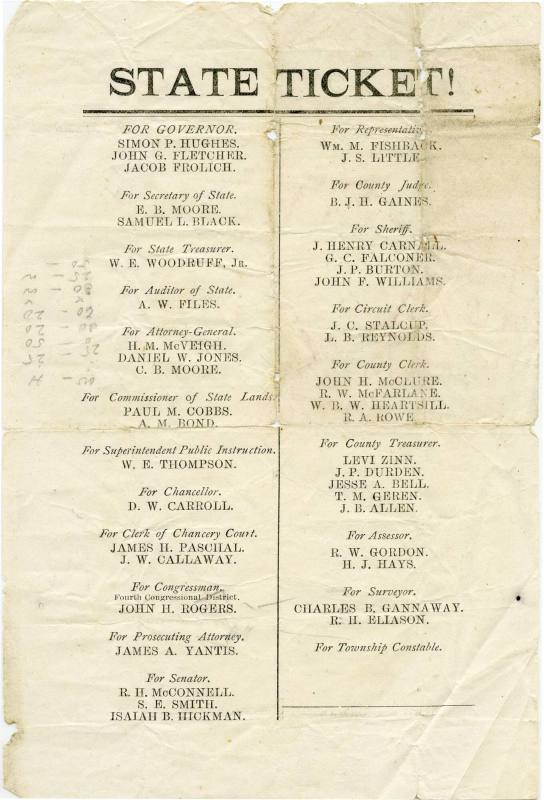 STATE TICKET!
FOR GOVERNOR.
SIMON P. HUGHES.
JOHN G. FLETCHER.
JACOB FROLICH.
For Secretary of State.
E. B. MOORE.
SAMUEL L. BLACK.
For State Treasurer.
W. E. WOODRUFF, JR.
For Auditor of State.
A. W. FILES.
For Attorney-General.
H. M. McVEIGH.
DANIEL W. JONES.
C. B. MOORE.
For Commissioner of State Lands
PAUL M. COBBS.
A. M. BOND.
For Superintendent Public Instruction.
W. E. THOMPSON.
For Chancellor.
D. W. CARROLL.
For Clerk of Chancery Court.
JAMES H. PASCHAL.
J. W. CALLAWAY.
For Congressman,
Fourth Congressional District.
JOHN H. ROGERS.
For Prosecuting Attorney.
JAMES A. YANTIS.
For Senator.
R. H. McCONNELL.
S. E. SMITH.
ISAIAH B. HICKMAN.
For Representativ
WM. M. FISHBACK.
J. S. LITTLE
For County Judge.
B. J. H. GAINES.
For Sheriff.
J. HENRY CARNALL.
G. C. FALCONER.
J. P. BURTON.
JOHN F. WILLIAMS.
For Circuit Clerk.
J. C. STALCUP,
L. B. REYNOLDS.
For County Clerk.
JOHN H. McCLURE.
R. W. McFARLANE.
W. B. W. HEARTSILL.
R. A. ROWE
For County Treasurer.
LEVI ZINN.
J. P. DURDEN.
JESSE A. BELL.
T. M. GEREN.
J. B. ALLEN.
For Assessor.
R. W. GORDON.
H. J. HAYS.
For Surveyor.
CHARLES B. GANNAWAY.
R. H. ELIASON.
For Township Constable.